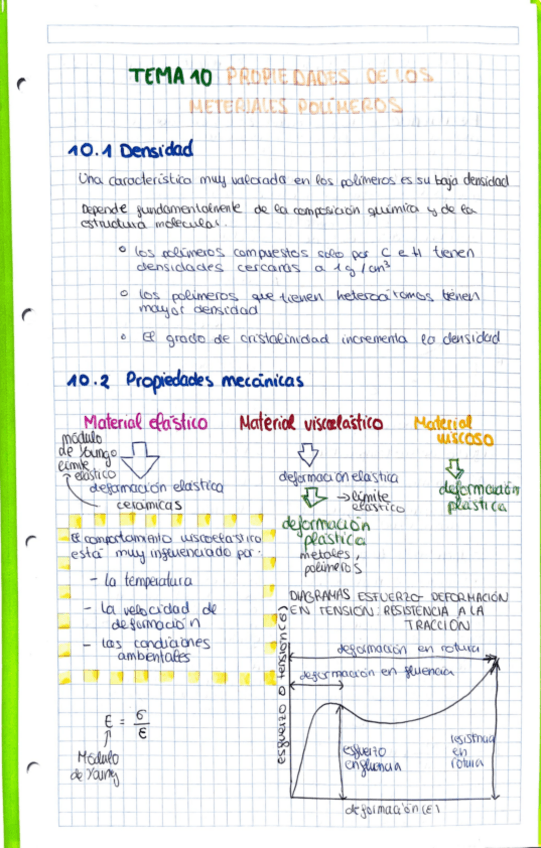 TEMA 10 PROPIEDADES DE LOS
METERIALES POLÍMEROS
10.1 Densidad
Una característica muy valorada en los polímeros es su baja densidad
Depende fundamentalmente de la composición química y de la
estructura molecular.
o los polímeros compuestos solo por C e H tienen
densidades cercanas a 1g/cm³
o los polímeros que tienen heteroátomos tienen
mayor densidad
o El grado de cristalinidad incrementa la densidad
10.2 Propiedades mecánicas
Material elástico Material viscoelástico Material
viscoso
módulo
de Young o
límite
elástico
deformación elástica
cerámicas
deformación elástica
→ límite
elástico
deformación
plástica
metales,
polímeros
deformación
plástica
El comportamiento viscoelástico
está muy influenciado por:
- la temperatura
- la velocidad de
deformación
- las condiciones
ambientales
DIAGRAMAS ESFUERZO-DEFORMACIÓN
EN TENSION: RESISTENCIA A LA
TRACCIÓN
E = σ/ε
Módulo
de Young
esfuerzo o tensión (σ)
deformación en rotura
deformación en fluencia
esfuerzo
en fluencia
en
rotura
deformación (ε)